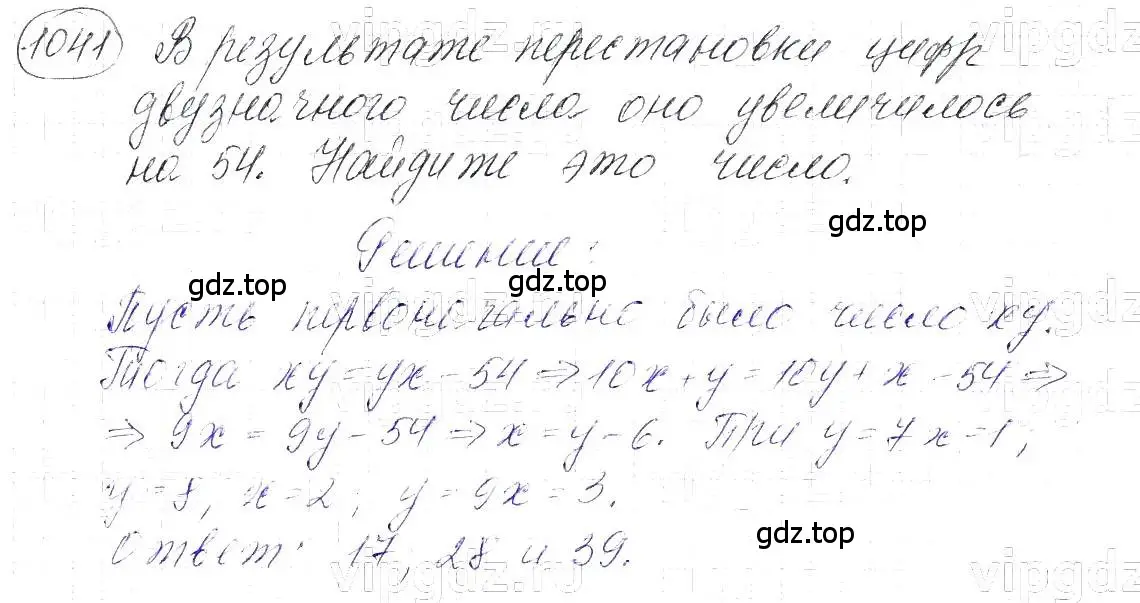 1041 В результате перестановки цифр
двузначного числа оно увеличилось
на 54. Найдите это число.
gdz.top
Решение:
gdz.top gdz.top
Пусть первоначально было число xy.
Тогда xy = yx - 54 => 10x + y = 10y + x - 54 =>
=> 9x = 9y - 54 => x = y - 6. При y = 7 x = 1;
y = 8, x = 2; y = 9 x = 3.
gdz.top
Ответ: 17, 28 и 39.